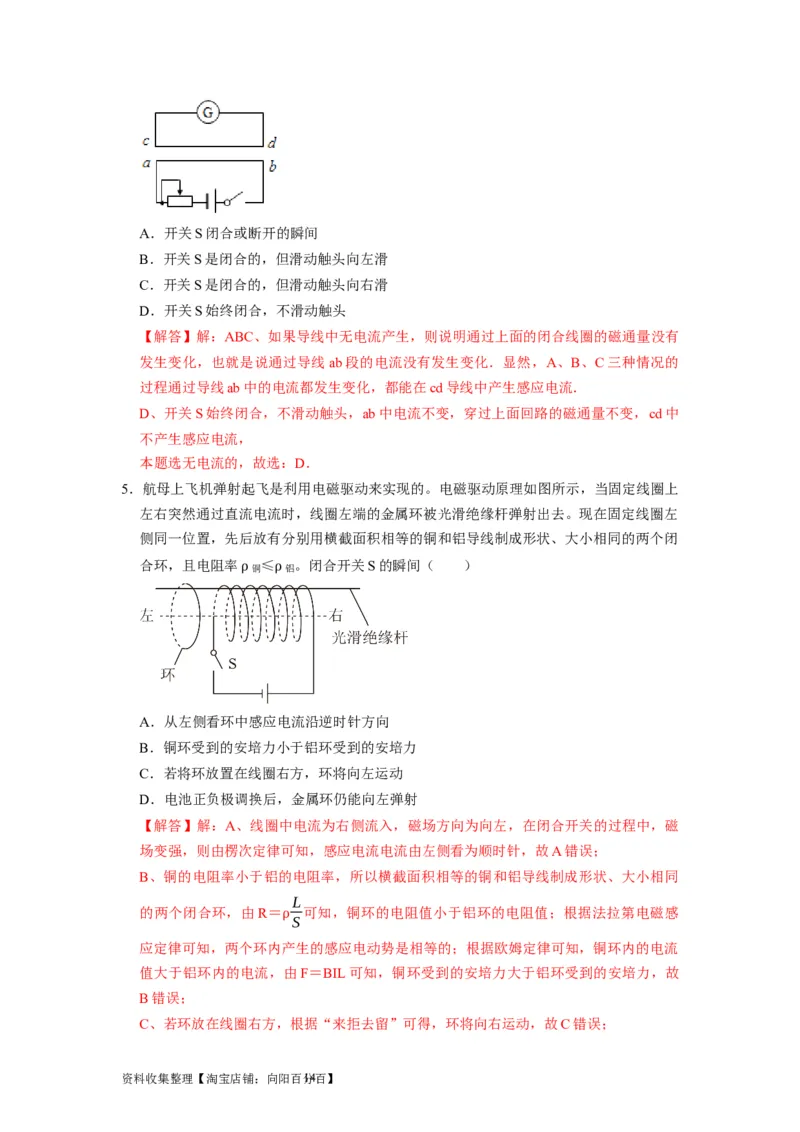 G
c
d
a
b
A．开关S闭合或断开的瞬间
B．开关S是闭合的，但滑动触头向左滑
C．开关S是闭合的，但滑动触头向右滑
D．开关S始终闭合，不滑动触头
【解答】解：ABC、如果导线中无电流产生，则说明通过上面的闭合线圈的磁通量没有
发生变化，也就是说通过导线ab段的电流没有发生变化．显然，A、B、C三种情况的
过程通过导线ab中的电流都发生变化，都能在cd导线中产生感应电流．
D、开关S始终闭合，不滑动触头，ab中电流不变，穿过上面回路的磁通量不变，cd中
不产生感应电流，
本题选无电流的，故选：D．
5．航母上飞机弹射起飞是利用电磁驱动来实现的。电磁驱动原理如图所示，当固定线圈上
左右突然通过直流电流时，线圈左端的金属环被光滑绝缘杆弹射出去。现在固定线圈左
侧同一位置，先后放有分别用横截面积相等的铜和铝导线制成形状、大小相同的两个闭
合环，且电阻率ρ铜≤ρ铝。闭合开关S的瞬间（　　）
左
右
光滑绝缘杆
S
环
A．从左侧看环中感应电流沿逆时针方向
B．铜环受到的安培力小于铝环受到的安培力
C．若将环放置在线圈右方，环将向左运动
D．电池正负极调换后，金属环仍能向左弹射
【解答】解：A、线圈中电流为右侧流入，磁场方向为向左，在闭合开关的过程中，磁
场变强，则由楞次定律可知，感应电流电流由左侧看为顺时针，故A错误；
B、铜的电阻率小于铝的电阻率，所以横截面积相等的铜和铝导线制成形状、大小相同
的两个闭合环，由R＝ρL/S可知，铜环的电阻值小于铝环的电阻值；根据法拉第电磁感
应定律可知，两个环内产生的感应电动势是相等的；根据欧姆定律可知，铜环内的电流
值大于铝环内的电流，由F＝BIL可知，铜环受到的安培力大于铝环受到的安培力，故
B错误；
C、若环放在线圈右方，根据“来拒去留”可得，环将向右运动，故C错误；
资料收集整理【淘宝店铺：向阳百分百】